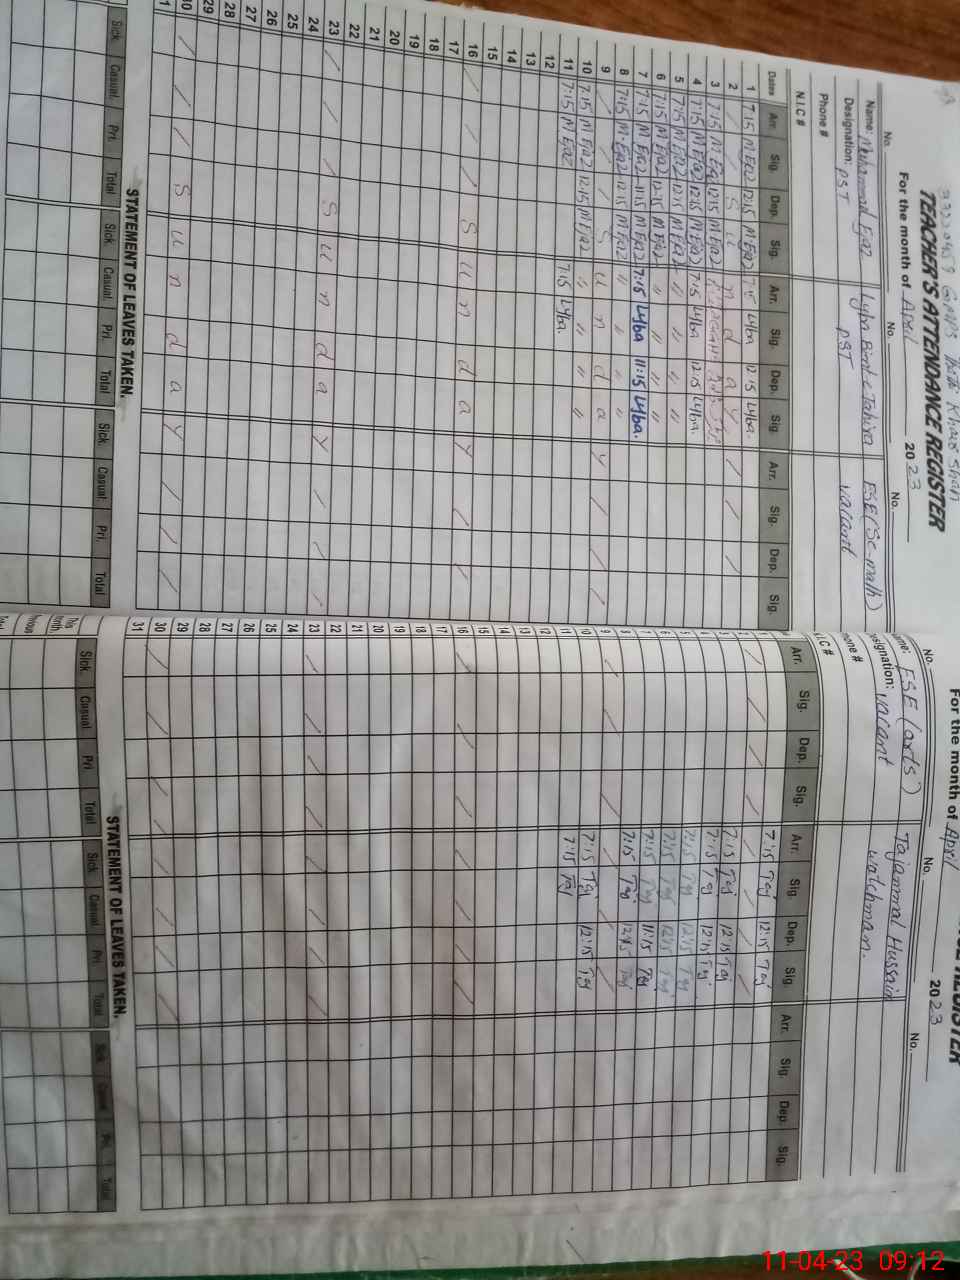 TEACHER'S ATTENDANCE REGISTER
For the month of April 2023
No. No. No.
Name: Muhammad Ejaz Lyba Bint-e-Tahira ESE (Sc-math)
Designation: PST PST vaccant
Phone #
N.I.C #
Dates Arr. Sig. Dep. Sig. Arr. Sig. Dep. Sig. Arr. Sig. Dep. Sig.
1 7:15 M Ejaz 12:15 M Ejaz 7:15 Lyba 12:15 Lyba.
2 S u n d a y
3 7:15 M Ejaz 12:15 M Ejaz
4 7:15 M Ejaz 12:15 M Ejaz 7:15 Lyba 12:15 Lyba.
5 7:15 M Ejaz 12:15 M Ejaz " " " "
6 7:15 M Ejaz 12:15 M Ejaz " " " "
7 7:15 M Ejaz 11:15 M Ejaz 7:15 Lyba 11:15 Lyba.
8 7:15 M. Ejaz 12:15 M Ejaz " " " "
9 S u n d a y
10 7:15 M Ejaz 12:15 M Ejaz " " " "
11 7:15 M Ejaz 7:15 Lyba.
12
13
14
15
16 S u n d a y
17
18
19
20
21
22
23 S u n d a y
24
25
26
27
28
29
30 S u n d a y
STATEMENT OF LEAVES TAKEN.
Sick. Casual. Pri. Total Sick. Casual. Pri. Total Sick. Casual. Pri. Total
For the month of April 2023
No. No. No.
ESE (arts) Tajammal Hussain
vacant watchman.
Arr. Sig. Dep. Sig. Arr. Sig. Dep. Sig. Arr. Sig. Dep. Sig.
1 7:15 Taj 12:15 Taj
2
3 7:15 Taj 12:15 Taj
4 7:15 Taj 12:15 Taj
5 7:15 Taj 12:15 Taj
6 7:15 Taj 12:15 Taj
7 7:15 Taj 11:15 Taj
8 7:15 Taj 12:15 Taj
9
10 7:15 Taj 12:15 Taj
11 7:15 Taj
12
13
14
15
16
17
18
19
20
21
22
23
24
25
26
27
28
29
30
31
STATEMENT OF LEAVES TAKEN.
Sick. Casual Pri. Total Sick. Casual Pri. Total Sick. Casual Pri. Total
11-04-23 09:12